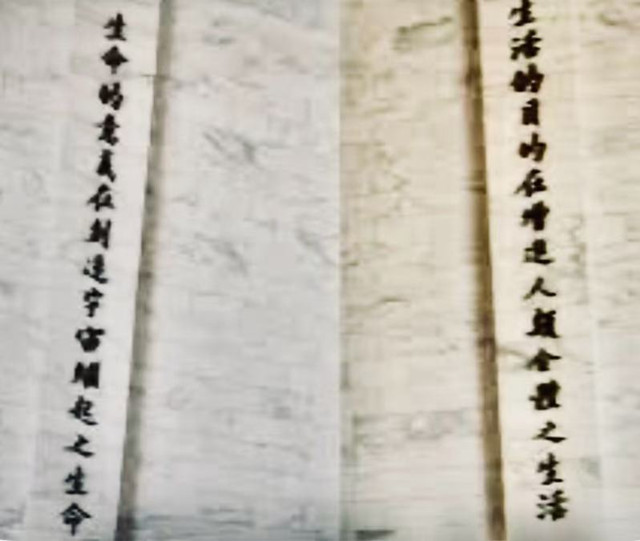 生活的目的在增進人類全體之生活
生命的意義在創造宇宙繼起之生命